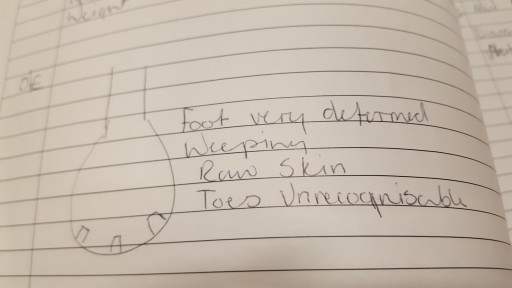 height
O/E
Foot very deformed
Weeping
Raw Skin
Toes Unrecognisable